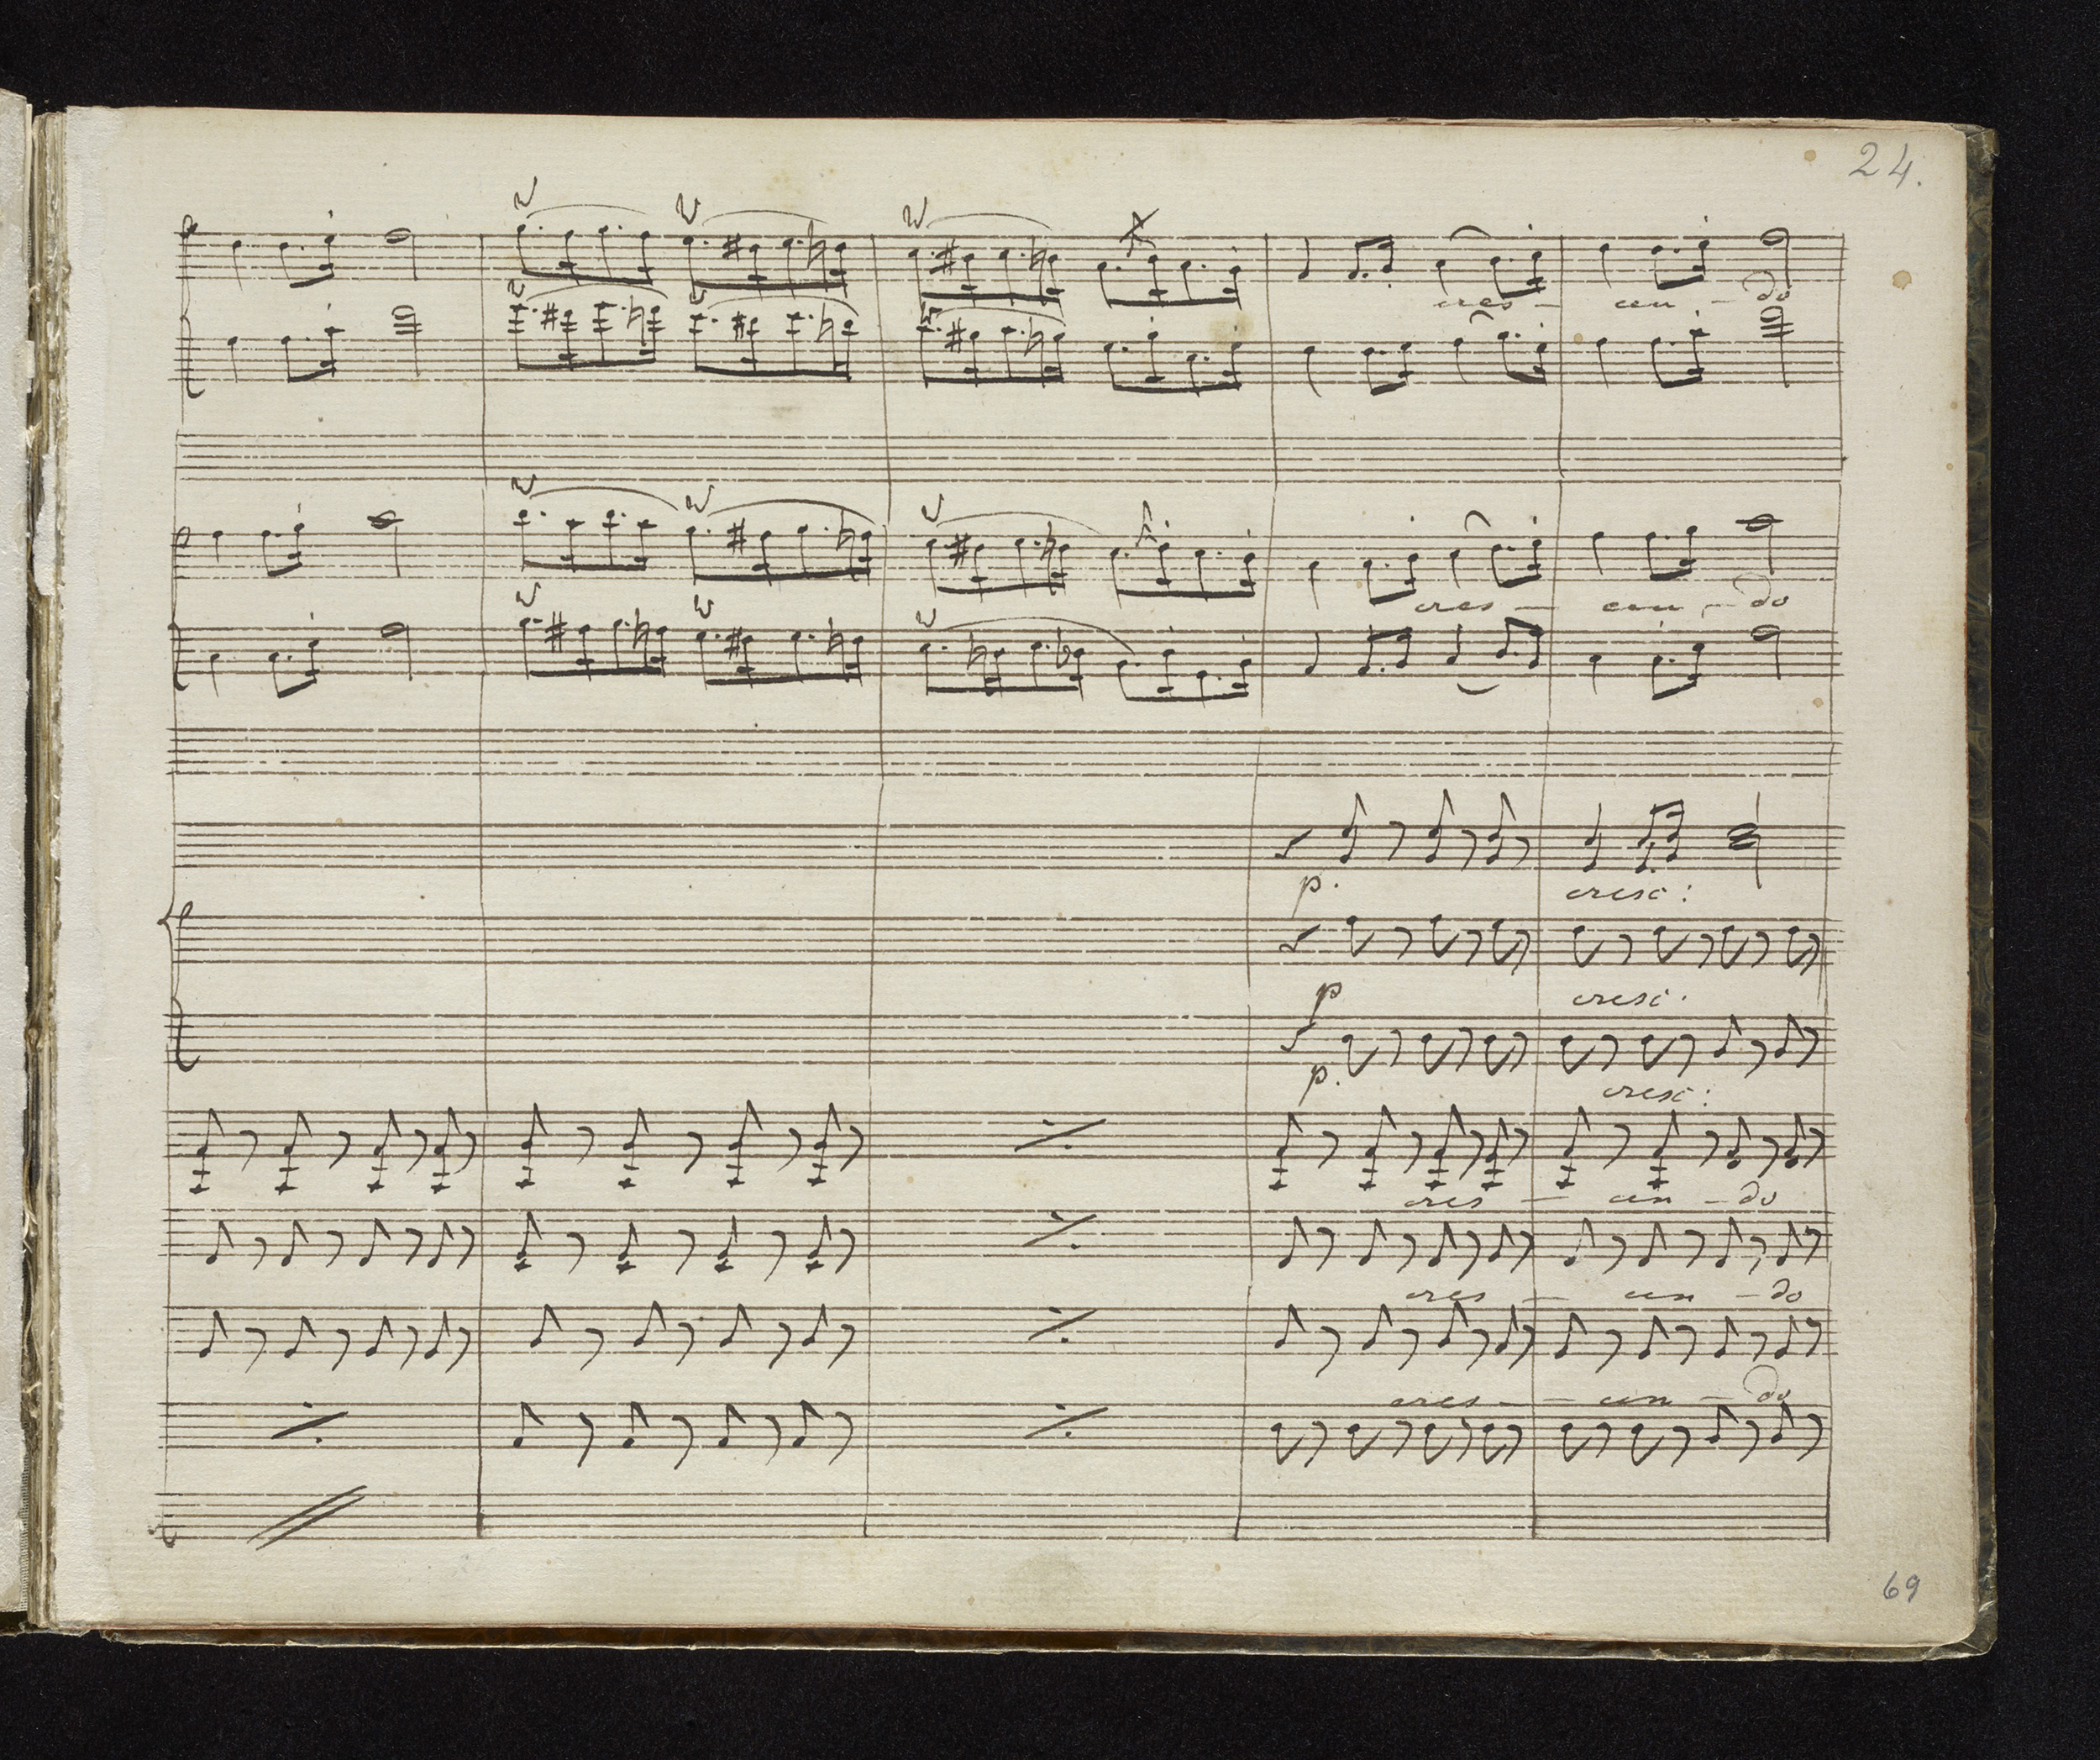 24.
cres - cen - do
cres - cen - do
p. cresc:
p cresc.
p. cresc:
cres - cen - do
cres - cen - do
cres - cen - do
69